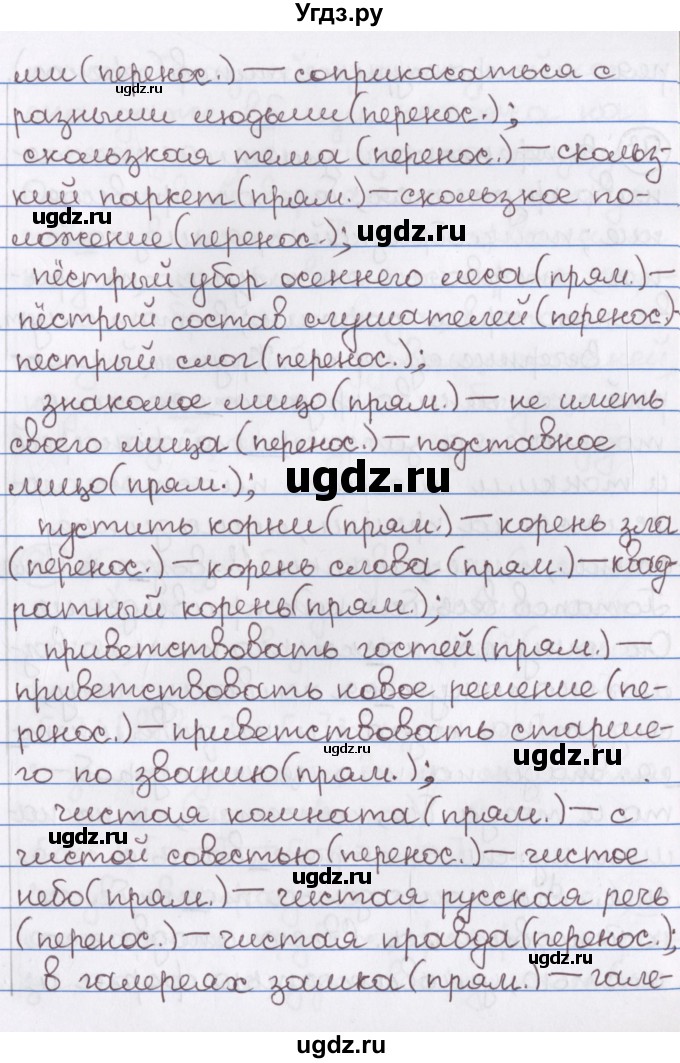 Угдз.ру
ми (перенос.) — соприкасаться с
ugdz.ru
разными людьми (перенос.);
скользкая тема (перенос.) — скольз-
кий паркет (прям.) — скользкое по-
ugdz.ru
ложение (перенос.);
ugdz.ru
пёстрый убор осеннего леса (прям.) —
пёстрый состав слушателей (перенос.) -
пестрый слог (перенос.);
ugdz.ru
знакомое лицо (прям.) — не иметь
своего лица (перенос.) — подставное
ugdz.ru
лицо (прям.);
пустить корни (прям.) — корень зла
ugdz.ru
(перенос.) — корень слова (прям.) — квад
ратный корень (прям.);
приветствовать гостей (прям.) —
приветствовать новое решение (пе-
ренос.) — приветствовать старше-
ugdz.ru
ugdz.ru
го по званию (прям.);
чистая комната (прям.) — с
ugdz.ru
чистой совестью (перенос.) — чистое
ugdz.ru
небо (прям.) — чистая русская речь
(перенос.) — чистая правда (перенос.);
ugdz.ru
в галереях замка (прям.) — гале-
ugdz.ru